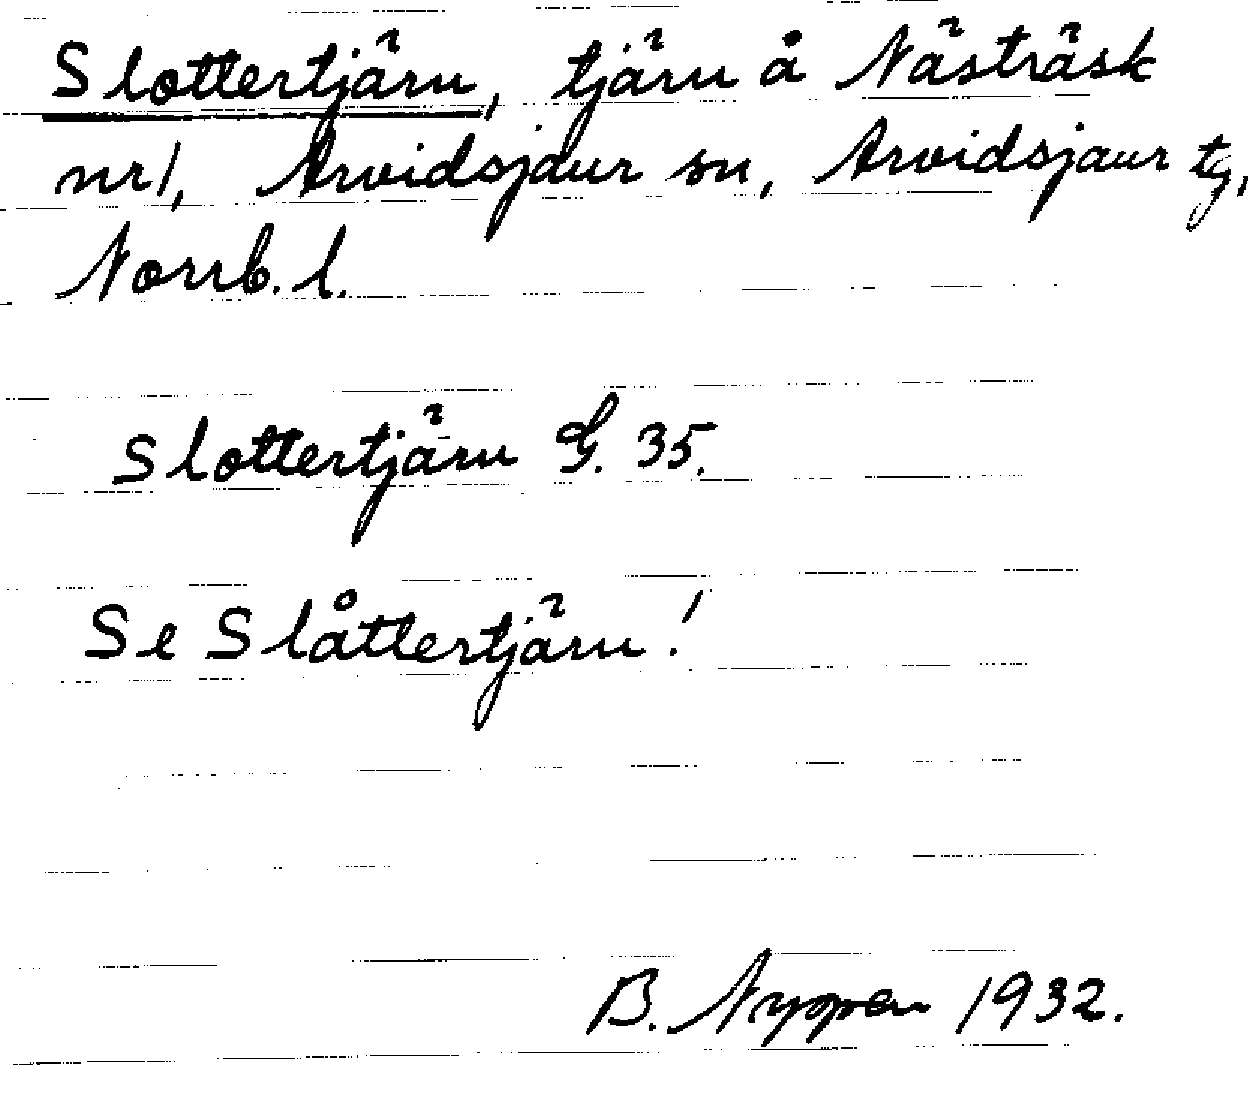 Slottertjärn, tjärn å Nästräsk
nr 1, Arvidsjaur sn, Arvidsjaur tg,
Norrb. l.
Slottertjärn G. 35.
Se Slåttertjärn!
B. 1932.